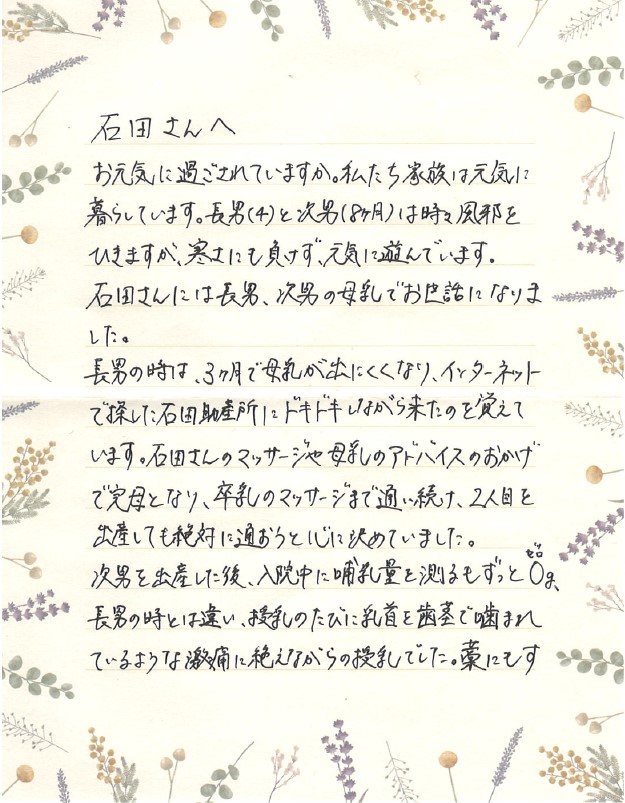 石田さんへ
お元気に過ごされていますか。私たち家族は元気に
暮らしています。長男(4)と次男(8ヶ月)は時々風邪を
ひきますが、寒さにも負けず、元気に遊んでいます。
石田さんには長男、次男の母乳でお世話になりま
した。
長男の時は、3ヶ月で母乳が出にくくなり、インターネット
で探した石田助産所にドキドキしながら来たのを覚えて
います。石田さんのマッサージや母乳のアドバイスのおかげ
で完母となり、卒乳のマッサージまで通い続け、2人目を
出産しても絶対に通おうと心に決めていました。
次男を出産した後、入院中に哺乳量を測るもずっと0g。
ゼロ
長男の時とは違い、授乳のたびに乳首を歯茎で噛まれ
ているような激痛に絶えながらの授乳でした。藁にもす